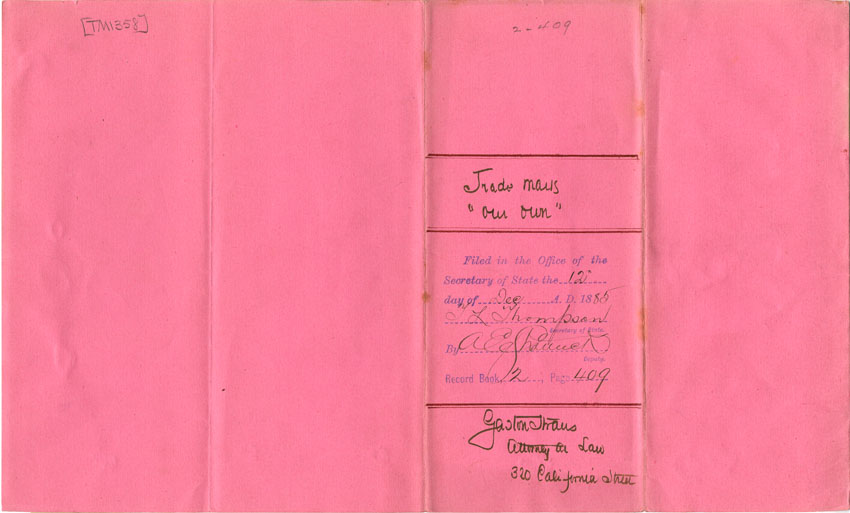 [TM1358]
2-409
Trade mark
"Our Own"
Filed in the Office of the
Secretary of State the 12
day of Dec A. D. 1885
T L Thompson
Secretary of State.
By A E
Deputy.
Record Book 2, Page 409
Gaston Straus
Attorney at Law
320 California Street